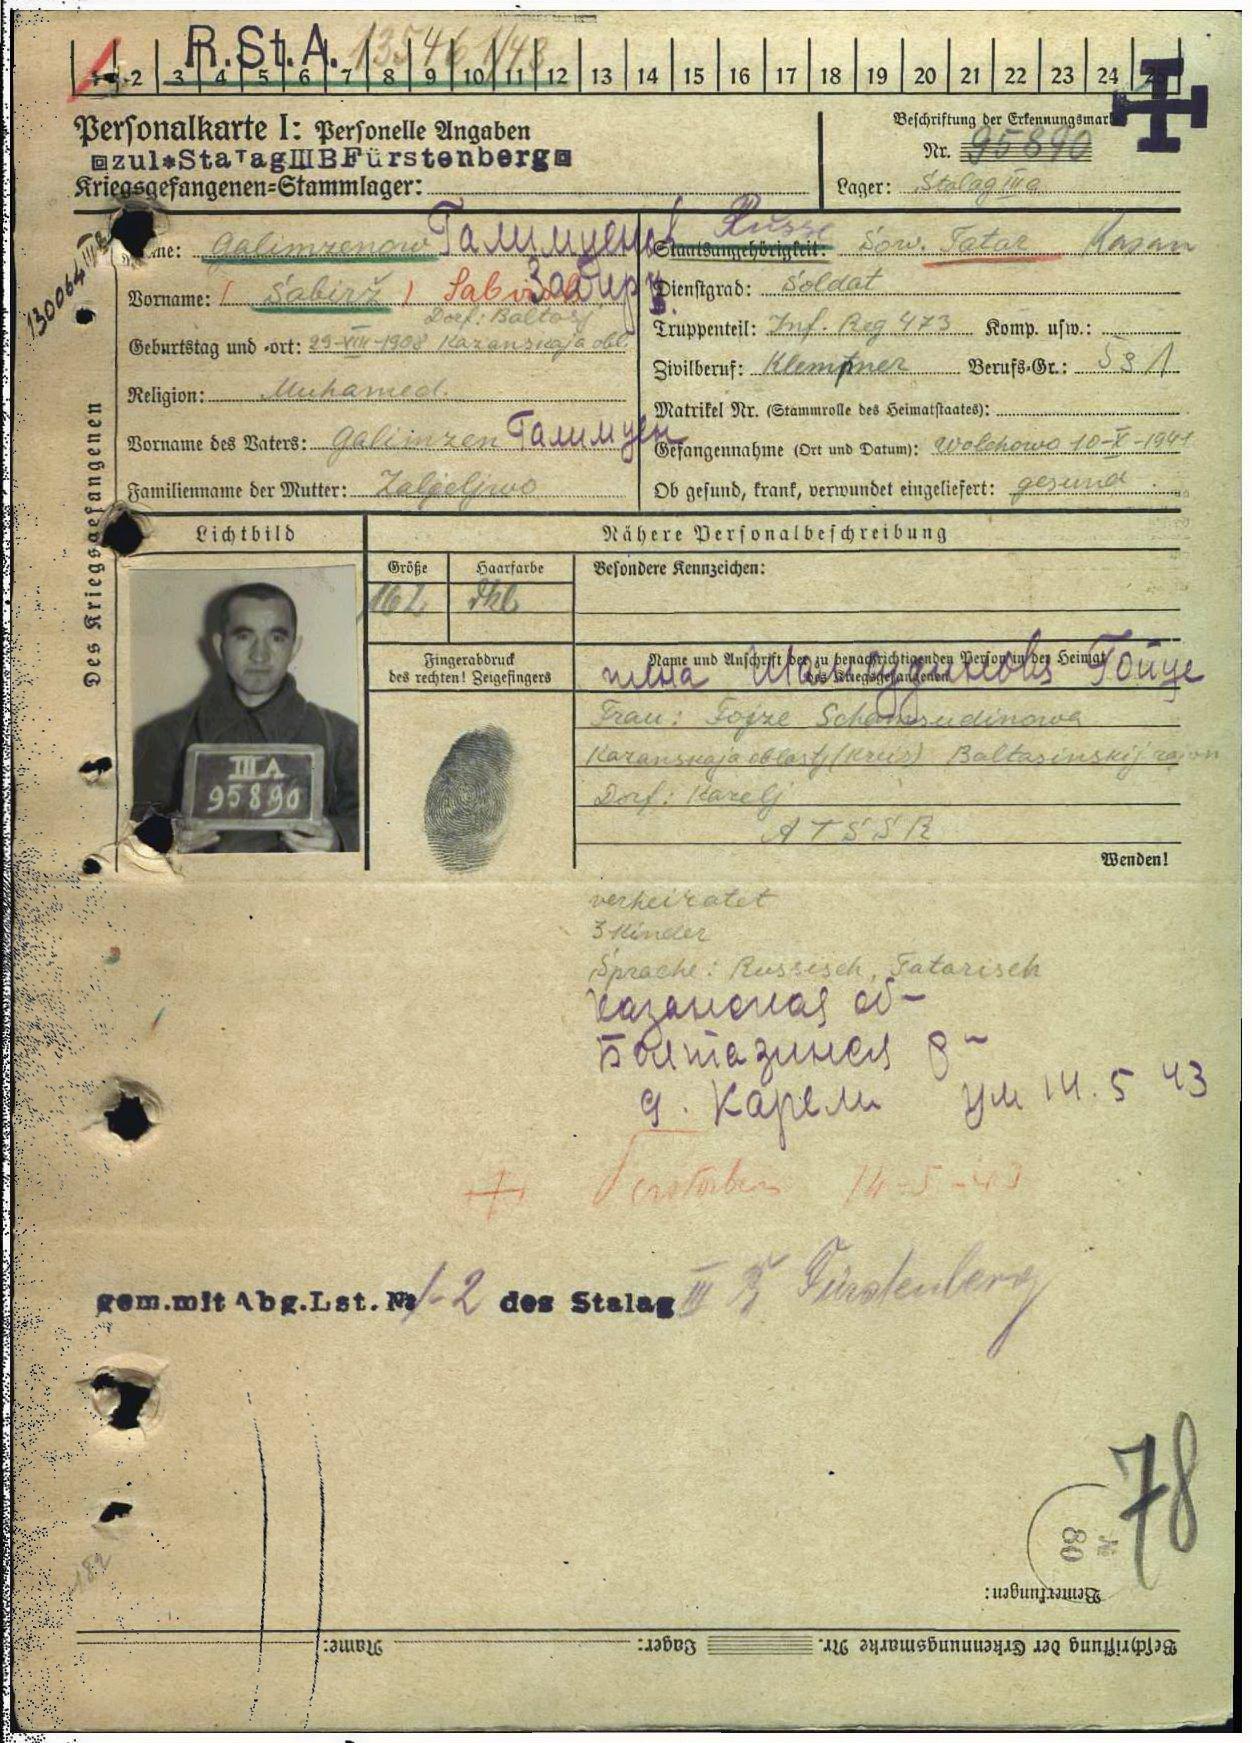 R.St.A. 13546 1/43
1 2 3 4 5 6 7 8 9 10 11 12 13 14 15 16 17 18 19 20 21 22 23 24 25
Personalkarte I: Personelle Angaben
zul*StaTagIIIBFürstenberg
Kriegsgefangenen-Stammlager:
Beschriftung der Erkennungsmarke
Nr. 95890
Lager: Stalag III a
130064
Des Kriegsgefangenen
Name: Galimzenow Галимценов
Vorname: Sabirž
Забир
Dorf: Baltasj
Geburtstag und -ort: 29-VIII-1908 Kazanskaja obl.
Religion: Muhamed.
Vorname des Vaters: Galimzen Галимцен
Familienname der Mutter: Zaljeljwo
Russe
Staatsangehörigkeit: Sow. Tatar Kasan
Dienstgrad: Soldat
Truppenteil: Inf. Reg 473 Komp. usw.:
Zivilberuf: Klempner Berufs-Gr.: S 3 1
Matrikel Nr. (Stammrolle des Heimatstaates):
Gefangennahme (Ort und Datum): Wolchowo 10-X-1941
Ob gesund, krank, verwundet eingeliefert: gesund
Lichtbild
Nähere Personalbeschreibung
Größe Haarfarbe Besondere Kennzeichen:
162 dkl.
III A
95890
Fingerabdruck
des rechten! Zeigefingers
Name und Anschrift der zu benachrichtigenden Person in der Heimat
des Kriegsgefangenen
жена Шамсудинова Гойце
Frau: Fojze Schamsudinowa
Kazanskaja oblastj (Kreis) Baltasinskij rajon
Dorf: Karelj
ATSSR
Wenden!
verheiratet
3 Kinder
Sprache: Russisch, Tatarisch
Казанская об-
Болтазинся р-
д. Карели ум 14. 5 43
Verstorben 14-5-43
gem.mit Abg.Lst.№ 1-2 des Stalag III B Fürstenberg
78
№ 80
Bemerkungen:
Beschriftung der Erkennungsmarke Nr. Lager: Name: